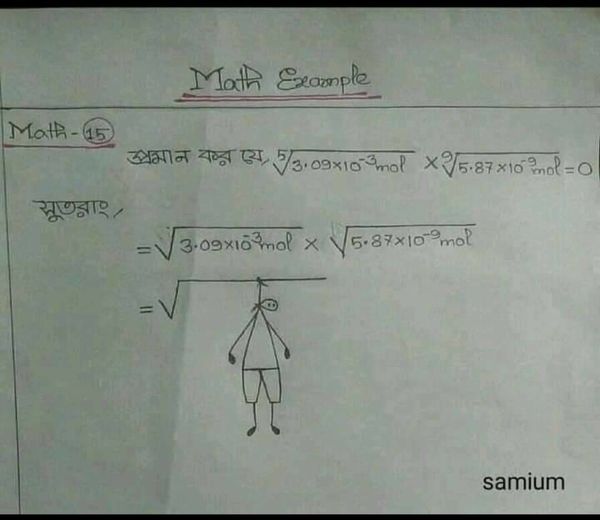 Math Example
Math - 15
প্রমান কর যে, ⁵√3.09×10⁻³mol × ⁹√5.87×10⁻⁹mol = 0
সুতরাং,
= √3.09×10⁻³mol × √5.87×10⁻⁹mol
= √
samium